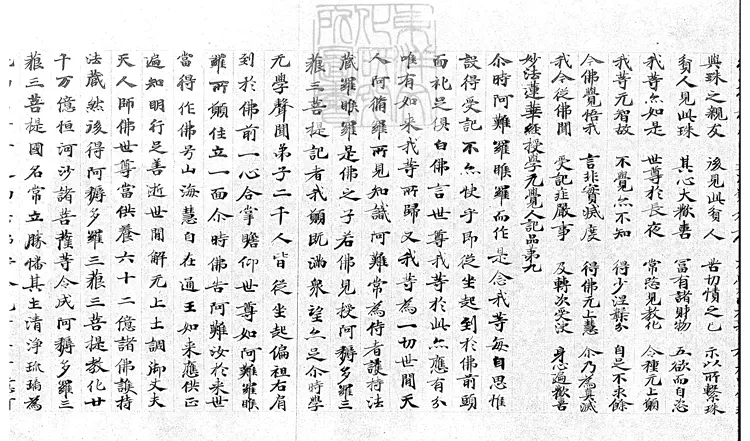 與珠之親友　後見此貧人　苦切責之已　示以所繫珠
貧人見此珠　其心大歡喜　富有諸財物　五欲而自恣
我等亦如是　世尊於長夜　常愍見教化　令種无上願
我等无智故　不覺亦不知　得少涅槃分　自足不求餘
今佛覺悟我　言非實滅度　得佛无上慧　尒乃為真滅
我今從佛聞　受記莊嚴事　及轉次受決　身心遍歡喜
妙法蓮華經授學无學人記品第九
尒時阿難羅睺羅而作是念我等每自思惟
設得受記不亦快乎即從坐起到於佛前頭
面礼足俱白佛言世尊我等於此亦應有分
唯有如來我等所歸又我等為一切世間天
人阿脩羅所見知識阿難常為侍者護持法
藏羅睺羅是佛之子若佛見授阿耨多羅三
藐三菩提記者我願既滿衆望亦足尒時學
无學聲聞弟子二千人皆從坐起偏袒右肩
到於佛前一心合掌瞻仰世尊如阿難羅睺
羅所願住立一面尒時佛告阿難汝於來世
當得作佛号山海慧自在通王如來應供正
遍知明行足善逝世間解无上士調御丈夫
天人師佛世尊當供養六十二億諸佛護持
法藏然後得阿耨多羅三藐三菩提教化廿
千万億恒河沙諸菩薩等令成阿耨多羅三
藐三菩提國名常立勝幡其土清淨琉璃為